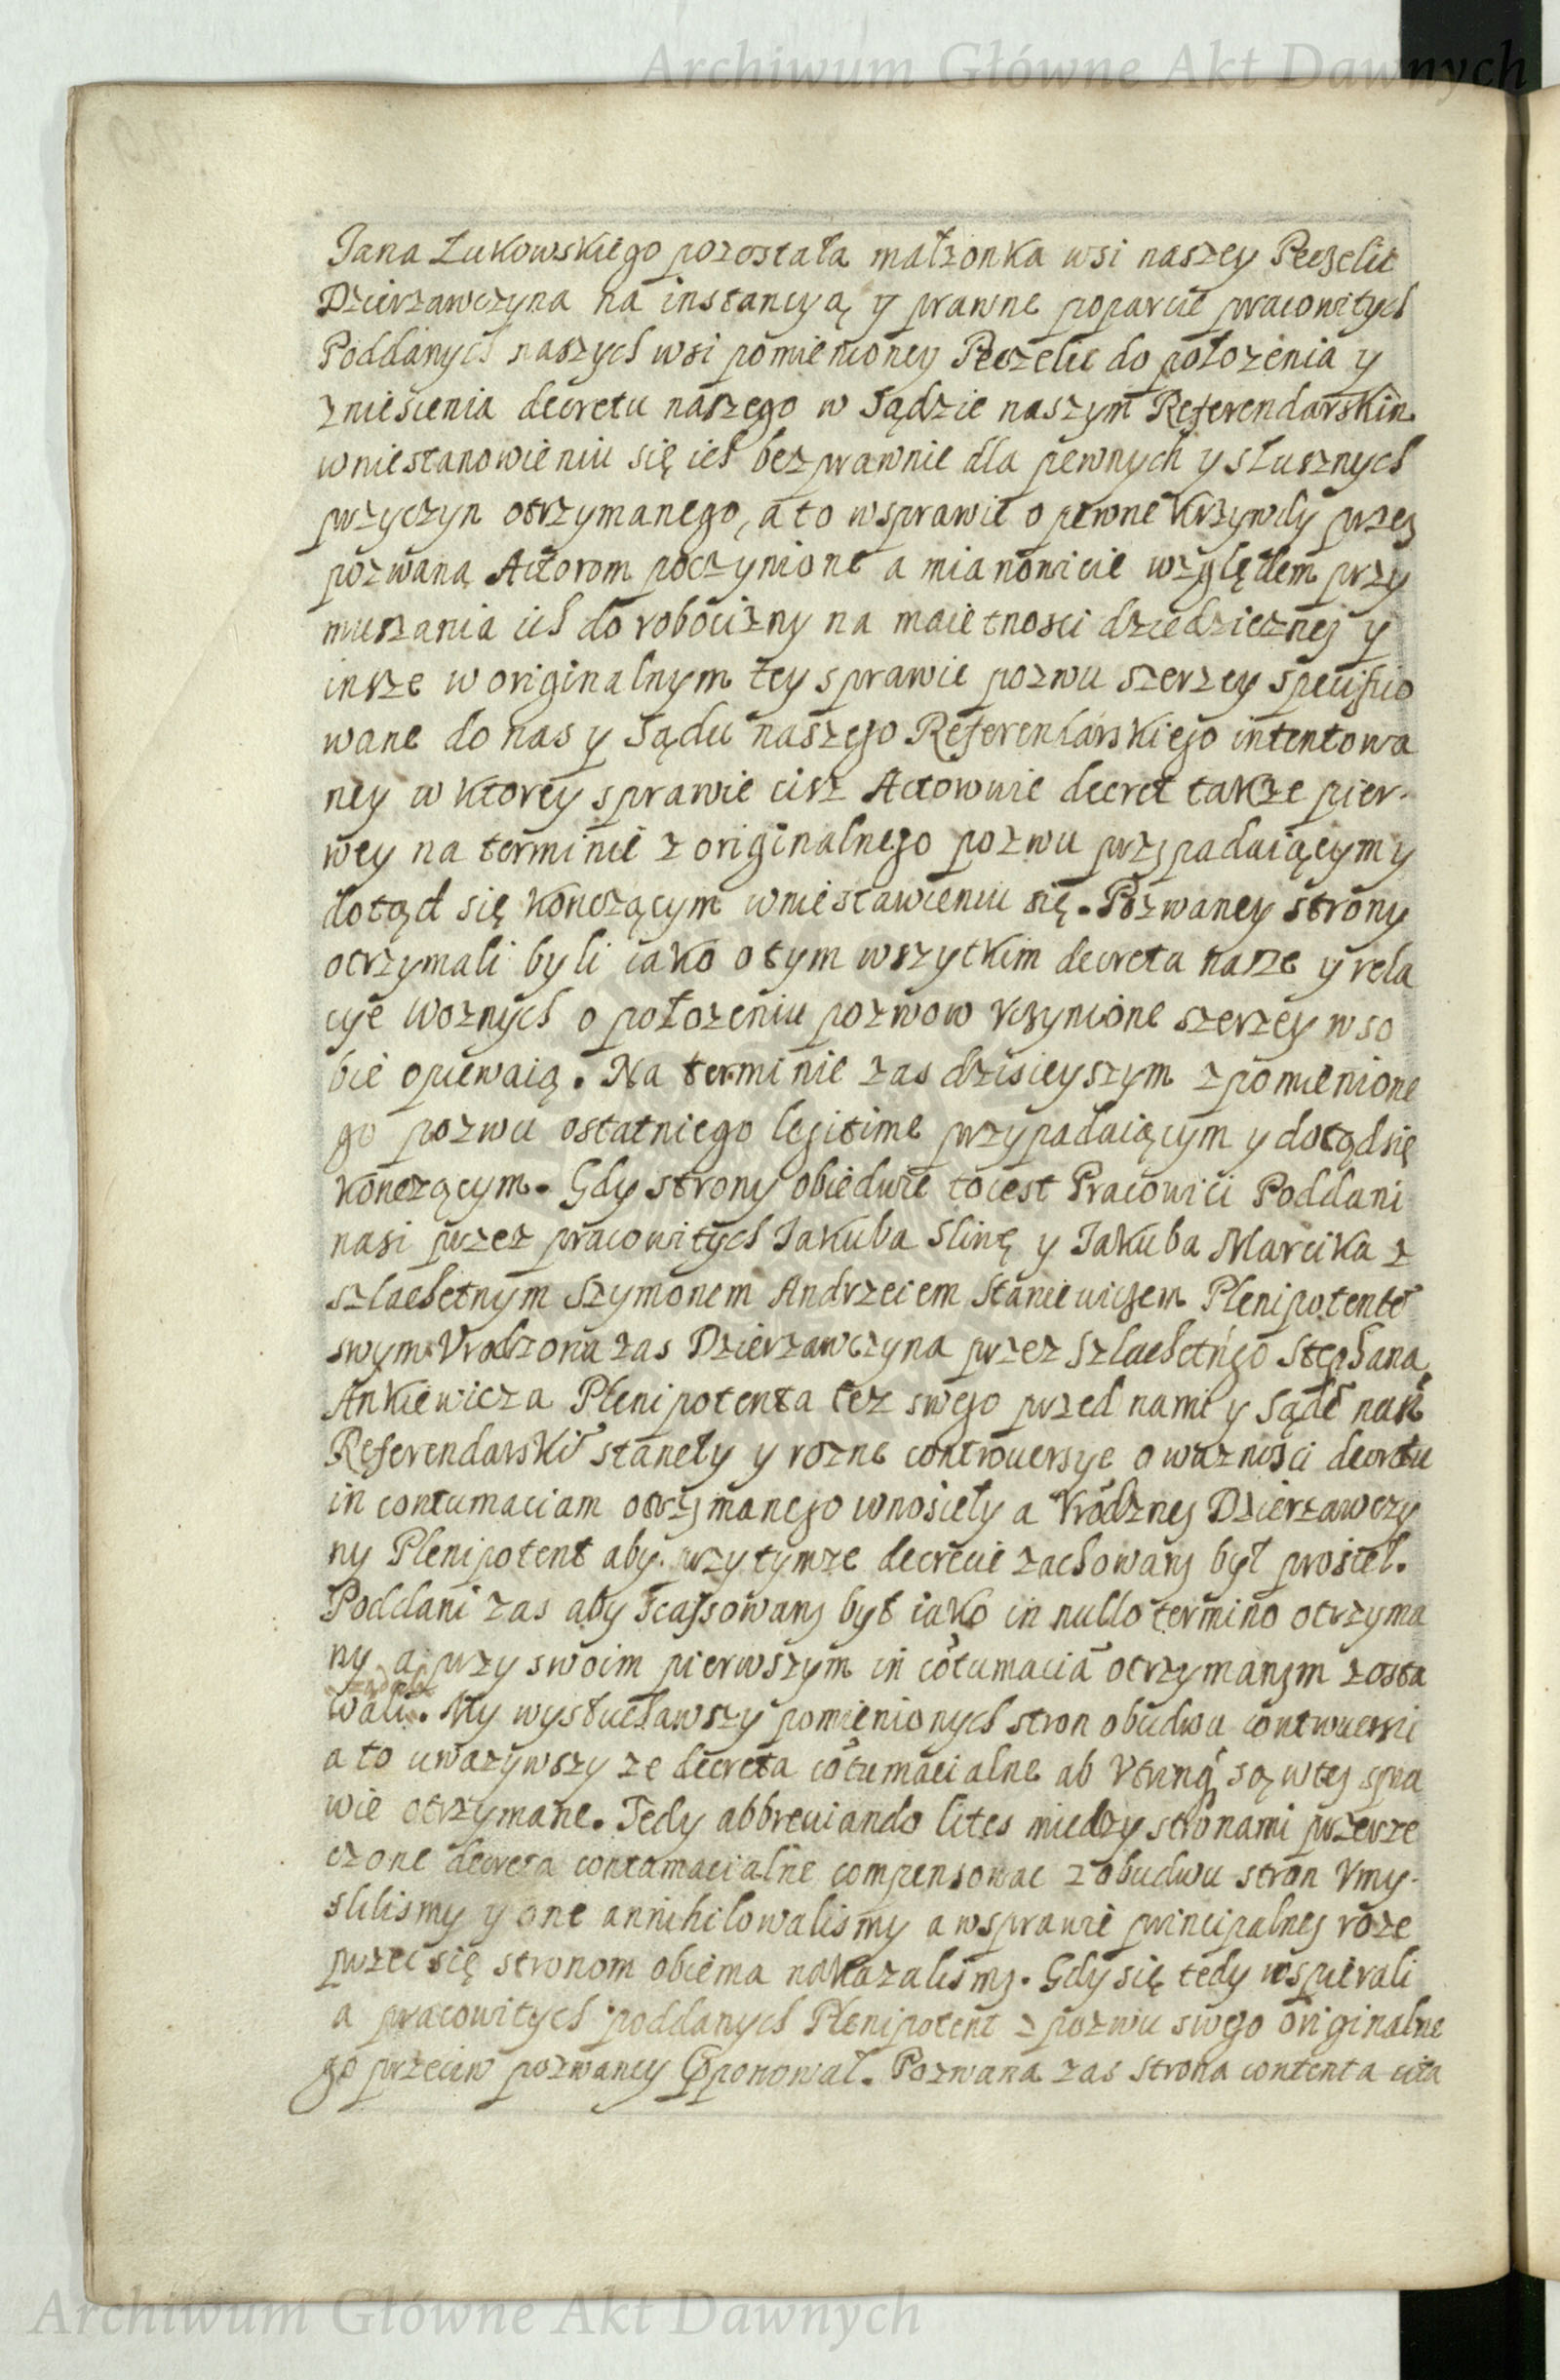 Archiwum Główne Akt Dawnych
Jana Łukowskiego pozostała małzonka wsi naszey Peczelic
Dzierzawczyna na instancyą y prawne poparcie pracowitych
Poddanych naszych wsi pomienioney Peczelic do połozenia y
zniesienia decretu naszego w Sądzie naszym Referendarskim
wniestanowieniu się ich bezprawnie dla pewnych y słusznych
przyczyn otrzymanego, a to wsprawie o pewne Krzywdy przez
pozwaną Actorom poczynione a mianowicie względem przy
muszania ich do robocizny na maietnosci dziedzicznej y
insze w originalnym tey sprawie pozwu szerzey specifico
wane do nas y Sądu naszego Referendarskiego intentowa
ney w ktorey sprawie cisz Actorowie decret takze pier-
wey na terminie z originalnego pozwu przypadaiącym y
dotąd się konczącym wniestawieniu się. Pozwaney strony
otrzymali byli iako o tym wszytkim decreta nasze y rela
cye woznych o połozeniu pozwow vczynione szerzey w so
bie opiewaią. Na terminie zas dzisieyszym z pomienione
go pozwu ostatniego legitime przypadaiącym y dotąd się
konczącym. Gdy strony obiedwie toiest Pracowici Poddani
nasi przez pracowitych Jakuba Slinę y Jakuba Marcika z
szlachetnym Szymonem Andrzeiem Staniewiczem Plenipotentẽ
swym Vrodzona zas Dzierzawczyna przez Szlachetńgo Stephana
Ankiewicza Plenipotenta tez swego przed nami y Sądẽ nań
Referendarskĩ stanęły y rozne controuersye o wazności decretu
in contumaciam otrzymanego wnosieły a Vrodznej Dzierzawczy
ny Plenipotent aby przytymze decrecie zachowany był prosieł.
Poddani zas aby scassowany był iako in nullo termino otrzyma
ny a przy swoim pierwszym in cõtumaciã otrzymanym zosta
wali. My wysłuchawszy pomienionych stron obudwu controuersii
a to uwazywszy ze decreta cõtumacialne ab vtrinq₃ są wtej spra
wie otrzymane. Tedy abbreuiando lites miedzy stronami przerze
czone decreta contumacialne compensowac z obudwu stron vmy-
slilismy y one annihilowalismy a wsprawie principalnej roze
przec się stronom obiema nakazalismy. Gdy się tedy wspierali
a pracowitych poddanych Plenipotent z pozwu swego originalne
go przeciw pozwaney proponował. Pozwana zas strona contenta cita
Archiwum Główne Akt Dawnych